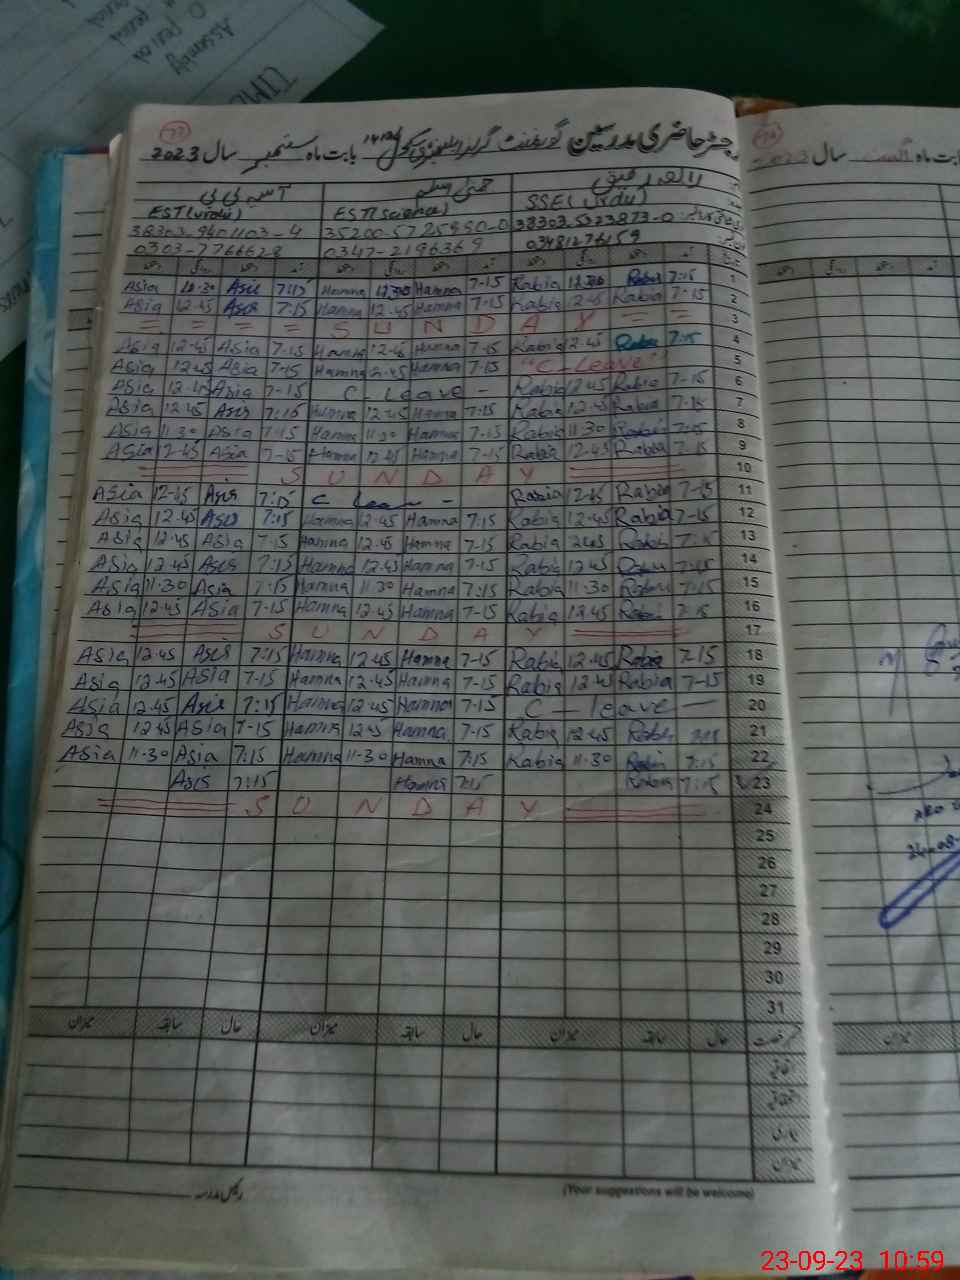 Assembly
رجسٹر حاضری مدرسین گورنمنٹ گرلز ایلیمنٹری سکول بابت ماہ ستمبر سال 2023
بابت ماہ اگست سال 2023
رابعہ رفیق آسیہ بی بی
EST(urdu) EST(science) SSE(urdu)
0303-7766628 0347-2196369 03481276159
Asia 12.30 Asia 7:15 Hamna 12.30 Hamna 7-15 Rabia 12.30 Rabia 7:15 1
Asia 12.45 Asia 7:15 Hamna 12.45 Hamna 7-15 Rabia 12.45 Rabia 7-15 2
= = = = S U N D A Y = = 3
Asia 12-45 Asia 7-15 Hamna 12-45 Hamna 7-15 Rabia 12.45 Rabia 7:15 4
Asia 12.45 Asia 7-15 Hamna 12.45 Hamna 7-15 "C-Leave" 5
Asia 12.45 Asia 7-15 C - Leave - Rabia 12.45 Rabia 7-15 6
Asia 12.45 Asia 7:15 Hamna 12.45 Hamna 7-15 Rabia 12.45 Rabia 7-15 7
Asia 11.30 Asia 7-15 Hamna 11.30 Hamna 7-15 Rabia 11.30 Rabia 7:15 8
Asia 12-45 Asia 7-15 Hamna 12.45 Hamna 7-15 Rabia 12.45 Rabia 7-15 9
S U N D A Y 10
Asia 12-45 Asia 7:15 C Leave - Rabia 12-45 Rabia 7-15 11
Asia 12.45 Asia 7:15 Hamna 12.45 Hamna 7:15 Rabia 12.45 Rabia 7-15 12
Asia 12.45 Asia 7-15 Hamna 12.45 Hamna 7-15 Rabia 12.45 Rabia 7:15 13
Asia 12.45 Asia 7:15 Hamna 12.45 Hamna 7-15 Rabia 12.45 Rabia 7:15 14
Asia 11.30 Asia 7:15 Hamna 11.30 Hamna 7:15 Rabia 11.30 Rabia 7:15 15
Asia 12.45 Asia 7-15 Hamna 12.45 Hamna 7-15 Rabia 12.45 Rabia 7:15 16
S U N D A Y 17
Asia 12.45 Asia 7:15 Hamna 12.45 Hamna 7-15 Rabia 12.45 Rabia 7-15 18
Asia 12.45 Asia 7-15 Hamna 12.45 Hamna 7-15 Rabia 12.45 Rabia 7-15 19
Asia 12.45 Asia 7:15 Hamna 12.45 Hamna 7-15 C - leave - 20
Asia 12.45 Asia 7-15 Hamna 12.45 Hamna 7-15 Rabia 12.45 Rabia 21
Asia 11-30 Asia 7:15 Hamna 11-30 Hamna 7:15 Rabia 11.30 Rabia 7:15 22
Asia 7:15 Hamna 7:15 Rabia 7:15 23
S U N D A Y 24
25
26
27
28
29
30
31
میزان سابقہ حال میزان سابقہ حال میزان سابقہ حال
اتفاقیہ
بیماری
میزان
رئیس مدرسہ (Your suggestions will be welcome)
23-09-23 10:59